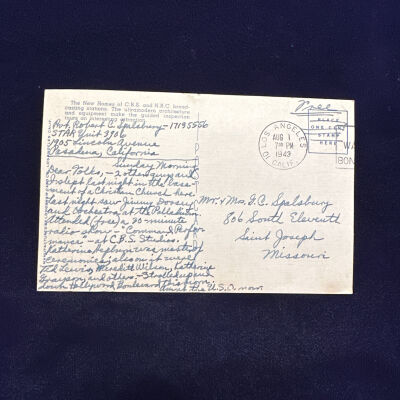 The New Homes of C.B.S. and N.B.C. broad-
casting stations. The ultramodern architecture
and equipment make the guided inspection
tours an interesting attraction.
Pvt. Robert C. Spalsbury - 17195556
STAR Unit 3906
1905 Lincoln Avenue
Pasadena, California
Sunday Morning
Dear Folks, - 2 other guys and
I slept last night in the base-
ment of a Christian Church here
last night saw Jimmy Dorsey
and orchestra at the Palladium
Attended (free) a 30 minute
radio show - "Command Perfor-
mance" - at C.B.S. Studios.
Katharine Hepburn was master of
ceremonies; also on it were
Ted Lewis, Meredith Wilson, Kathryn
Grayson, and others. - Strolled up and
down Hollywood Boulevard. This
Army the U.S.A. now
Free
PLACE
ONE CENT
STAMP
HERE
LOS ANGELES
AUG 1
7 30 PM
1943
CALIF.
WA
BON
Mr. & Mrs. F.C. Spalsbury
806 South Eleventh
Saint Joseph
Missouri